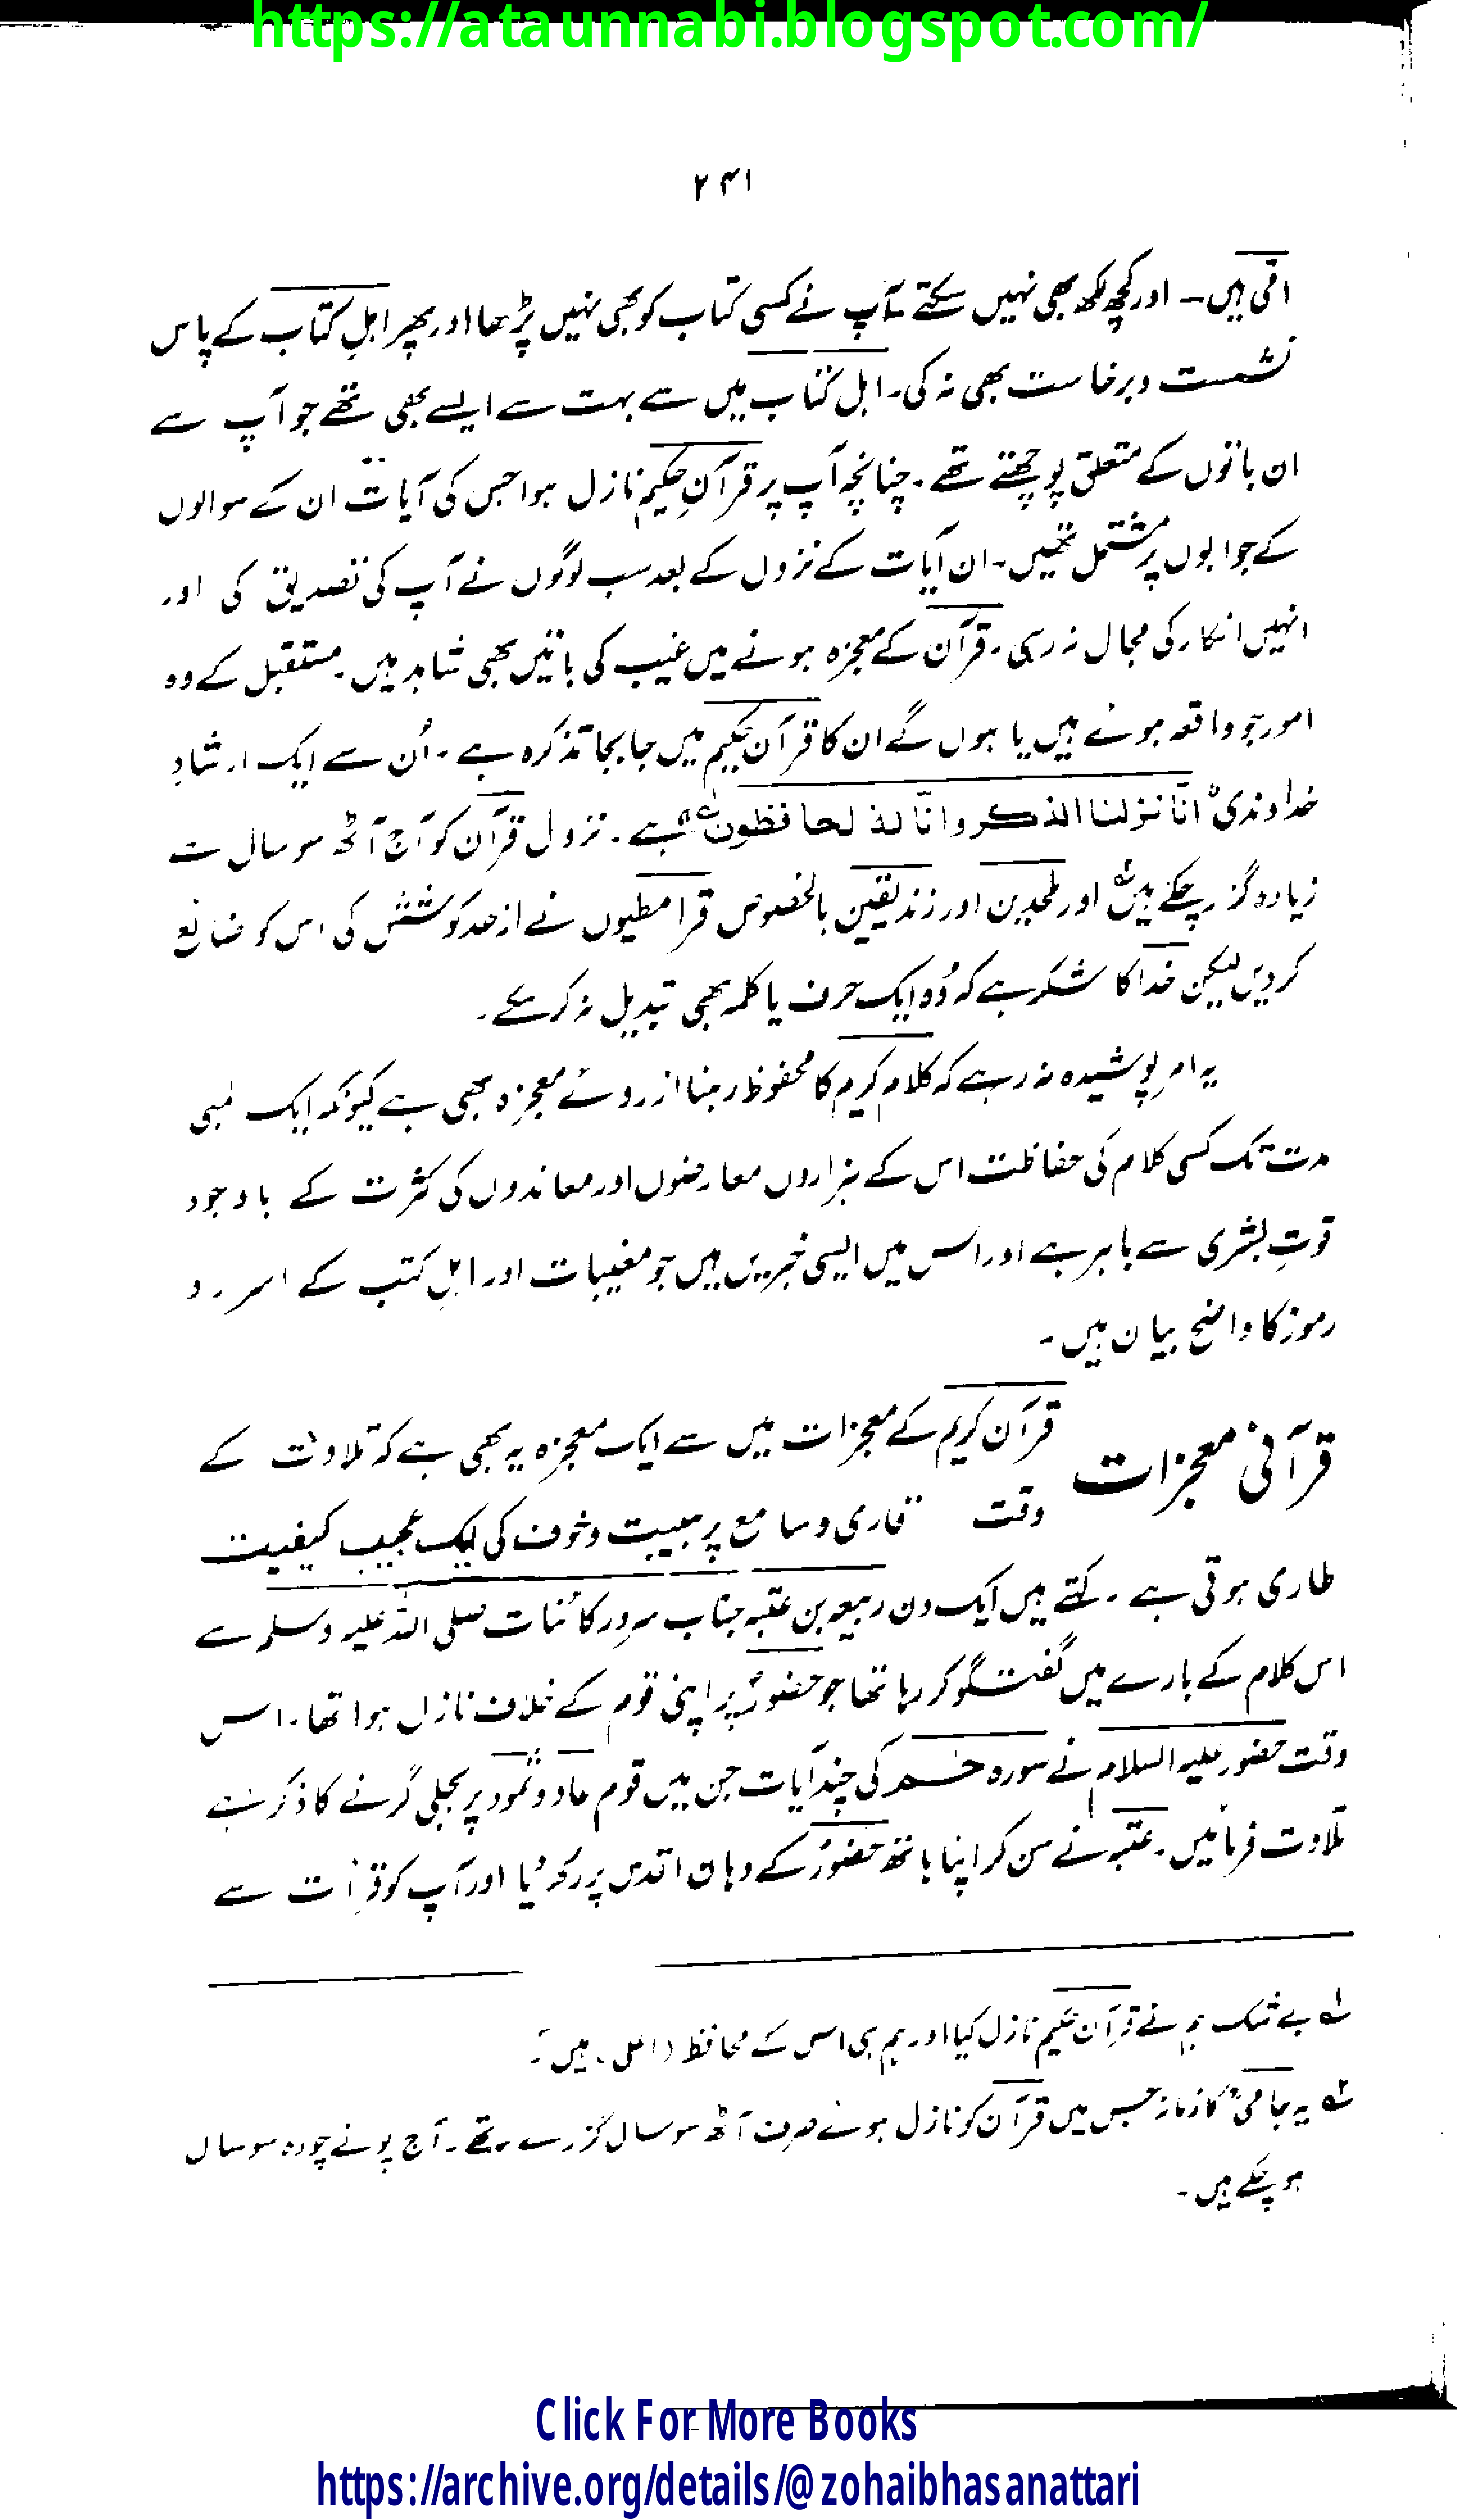 https://ataunnabi.blogspot.com/
۲۴۱
امّی ہیں۔ اور کچھ لکھ بھی نہیں سکتے۔ آپ نے کسی کتاب کو بھی نہیں پڑھا اور پھر اہلِ کتاب کے پاس
نشست و برخاست بھی نہ کی۔ اہل کتاب میں سے بہت سے ایسے بھی تھے جو آپ سے
ان باتوں کے متعلق پوچھتے تھے۔ چنانچہ آپ پر قرآنِ حکیم نازل ہوا جس کی آیات ان کے سوالوں
کے جوابوں پر مشتمل تھیں۔ ان آیات کے نزول کے بعد سب لوگوں نے آپ کی تصدیق کی اور
انہیں انکار کی مجال نہ رہی۔ قرآن کے معجزہ ہونے میں غیب کی باتیں بھی شاہد ہیں۔ مستقبل کے وہ
امور جو واقعہ ہونے ہیں یا ہوں گے ان کا قرآن حکیم میں جابجا تذکرہ ہے۔ اُن سے ایک ارشادِ
خداوندی انّا نزلنا الذکر وانّا لہٗ لحافظون ہے۔ نزول قرآن کو آج آٹھ سو سال سے
زیادہ گزر چکے ہیں اور ملحدین اور زندیقین بالخصوص قرامطیوں نے از حد کوشش کی اس کو ضائع
کر دیں لیکن خدا کا شکر ہے کہ وُہ ایک حرف یا کلمہ بھی تبدیل نہ کر سکے۔
یہ امرِ پوشیدہ نہ رہے کہ کلامِ کریم کا محفوظ رہنا ازروئے معجزہ بھی ہے کیونکہ ایک لمبی
مدت تک کسی کلام کی حفاظت اس کے ہزاروں معارضوں اور معاندوں کی کثرت کے باوجود
قوتِ بشری سے باہر ہے اور اس میں ایسی خبریں ہیں جو مغیبات اور اہلِ کتب کے اسرار و
رموز کا واضح بیان ہیں۔
قرآنی معجزات قرآن کریم کے معجزات میں سے ایک معجزہ یہ بھی ہے کہ تلاوت کے
وقت قاری و سامع پر ہیبت و خوف کی ایک عجیب کیفیت
طاری ہوتی ہے۔ کہتے ہیں ایک دن ربیعہ بن عتبہ جناب سرورِ کائنات صلی اللہ علیہ وسلم سے
اس کلام کے بارے میں گفتگو کر رہا تھا جو حضورؐ پر اپنی قوم کے خلاف نازل ہوا تھا۔ اس
وقت حضور علیہ السلام نے سورہ حٰم کی چند آیات جن میں قوم عاد و ثمود پر بجلی گرنے کا ذکر ہے
تلاوت فرمائیں۔ عتبہ نے سن کر اپنا ہاتھ حضورؐ کے دہان اقدس پر رکھ دیا اور آپ کو قرأت سے
لے بے شک ہم نے قرآن حکیم نازل کیا اور ہم ہی اس کے محافظ (اصلی) ہیں۔
لے یہ جامیؒ کا زمانہ جس میں قرآن کو نازل ہوئے صرف آٹھ سو سال گزرے تھے۔ آج پونے چودہ سو سال
ہو چکے ہیں۔
Click For More Books
https://archive.org/details/@zohaibhasanattari